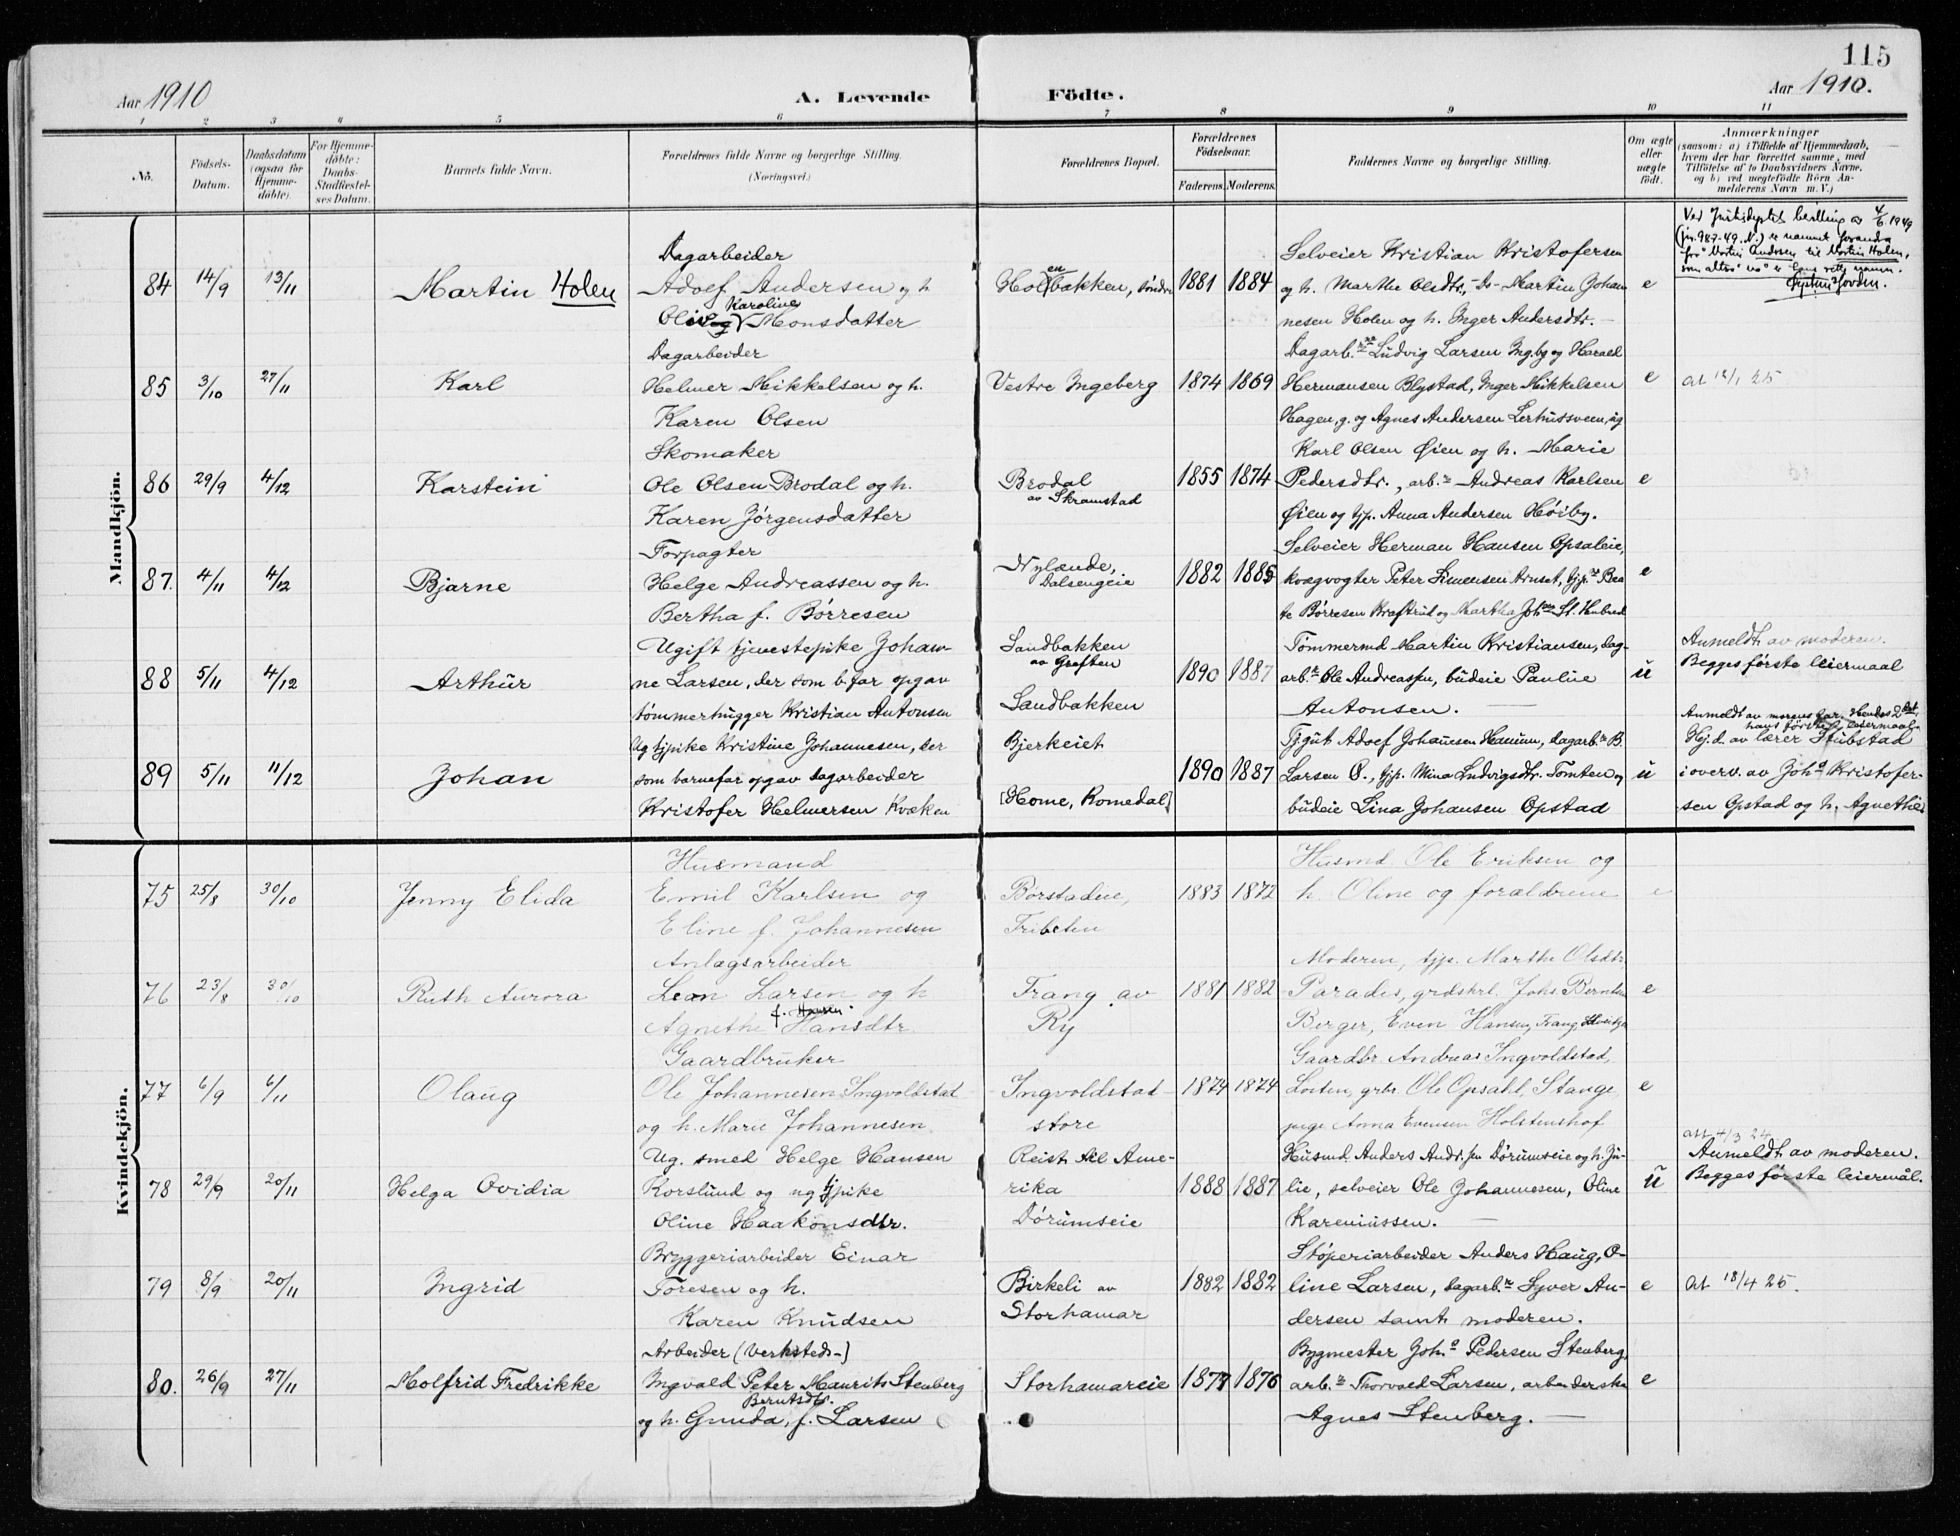 115
Aar 1910
A. Levende Födte.
Aar 1910.
1 2 3 4 5 6 7 8 9 10 11
No.
Födsels-Datum.
Daabsdatum (ogsaa for Hjemme-döbte).
For Hjemme-döbte: Daabs-Stadfæstel-ses Datum.
Barnets fulde Navn.
Forældrenes fulde Navne og borgerlige Stilling.
(Næringsvei.)
Forældrenes Bopæl.
Forældrenes Födselsaar.
Faderens. Moderens.
Faddernes Navne og borgerlige Stilling.
Om ægte eller uægte födt.
Anmærkninger
(saasom: a) i Tilfælde af Hjemmedaab,
hvem der har forrettet samme, med
Tilföielse af to Daabsvidners Navne,
og b) ved uægtefödte Börn An-
melderens Navn m. V.)
Mandkjön.
84 14/9 13/11 Martin Holen
Dagarbeider
Adolf Andersen og h
Karoline
Monsdatter
Holenbakken, søndre 1881 1884
Selveier Kristian Kristofersen
og h. Marthe Olsdtr., Do Martin Johan
nesen Holen og h. Inger Andersdtr.
e
Ved Justisdeptets bevilling av 4/6 1949
(jnr. 987-49. N.) er namnet
frå Martin Andersen til Martin Holen,
som altså no er rette namn.
85 3/10 27/11 Karl
Dagarbeider
Helmer Mikkelsen og h.
Karen Olsen
Vestre Ingeberg 1874 1869
Dagarb. Ludvig Larsen Ingbg og Harald
Hermansen Blystad, Inger Mikkelsen
Hagen, g. og Agnes Andersen Lerhussveen, ug
e
At 18/1 25
86 29/9 4/12 Karstein
Skomaker
Ole Olsen Brodal og h.
Karen Jörgensdatter
Brodal
av Skramstad
1855 1874
Karl Olsen Øien og h. Marie
Pedersdtr., arb.r Andreas Karlsen
Øien og tjp. Anna Andersen Høiby.
e
87. 4/11 4/12 Bjarne
Forpagter
Helge Andreassen og h.
Bertha f. Børresen
Nylænde,
Dalsengeie
1882 1885
Selveier Herman Hansen Opsaleie,
kvægvogter Peter Simensen Arnset, tjp.r Bea
te Børresen Kraftrud og Martha
e
88 5/11 4/12 Arthur
Ugift tjenestepike Johan-
ne Larsen, der som b.far opgav
tømmerhugger Kristian Antonsen
Sandbakken
av Grøften
Sandbakken
1890 1887
Tømmermd Martin Kristiansen, dag-
arb.r Ole Andreassen, budeie Pauline
Antonsen.
u
Anmeldt av moderen.
Begges første leiermaal
89 5/11 11/12 Johan
Ug tjpike Kristine Johannesen, der
som barnefar opgav dagarbeider
Kristofer Helmersen Kvæken
Bjerkeiet
[Home, Romedal]
1890 1887
Tj.gut Adolf Johansen Hamm, dagarb.r B.
Larsen O., tjp. Mina Ludvigsdtr. Tomten og
budeie Lina Johansen Opstad
u
Anmeldt av far. Hendes 2det,
hans første leiermaal.
Hj.d. av lærer Stubstad
i overv. av Joh.s Kristofer-
sen Opstad og h. Agnethe
Kvindekjön.
75 25/8 30/10 Jenny Elida
Husmand
Emil Karlsen og
Eline f. Johannesen
Borstadeie,
Tribeten
1883 1872
Husmd. Ole Eriksen og
h. Oline og forældrene
e
76 23/8 30/10 Ruth Aurora
Anlægsarbeider
Leon Larsen og h
f. Hansen
Agnethe Hansdtr
Frang av
Ry
1881 1882
Moderen, tjp. Marthe Olsdtr
Parades, grdskrl. Johs. Berntsen
Berger, Even Hansen, Frang
e
77 6/9 6/11 Olaug
Gaardbruker
Ole Johannesen Ingvoldstad
og h. Marie Johannesen
Ingvoldstad
store
1874 1874
Gaardbr Andreas Ingvoldstad,
Løiten, grbr. Ole Opsahl, Stange
pige Anna Evensen Holstenshof
e
78 29/9 20/11 Helga Ovidia
Ug. smed Helge Hansen
Korslund og ug tjpike
Oline Haakonsdtr.
Reist til Ame-
rika
Dørumseie
1888 1887
Husmd. Anders Andr.sen Dørumseie og h. Ju-
lie, selveier Ole Johannesen, Oline
Kareniussen.
u
att 4/3 24
Anmeldt av moderen.
Begges første leiermål.
79 8/9 20/11 Ingrid
Bryggeriarbeider Einar
Foresen og h.
Karen Knudsen
Birkeli av
Storhamar
1882 1882
Støperiarbeider Anders Haug, O-
line Larsen, dagarb.r Syver An-
dersen samt moderen.
e
At 18/4 25.
80. 26/9 27/11 Molfrid Fredrikke
Arbeider (Verksteds-)
Ingvald Peter Maurits Stenberg
Berntsdtr.
og h. Gunda, f. Larsen
Storhamareie 1877 1876
Bygmester Joh.s Pedersen Stenberg,
arb.r Thorvald Larsen, arbeiderske
Agnes Stenberg.
e